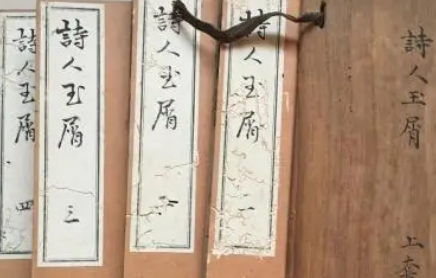 詩人玉屑 上套
詩人玉屑
詩人玉屑
詩人玉屑 三
詩人玉屑 四